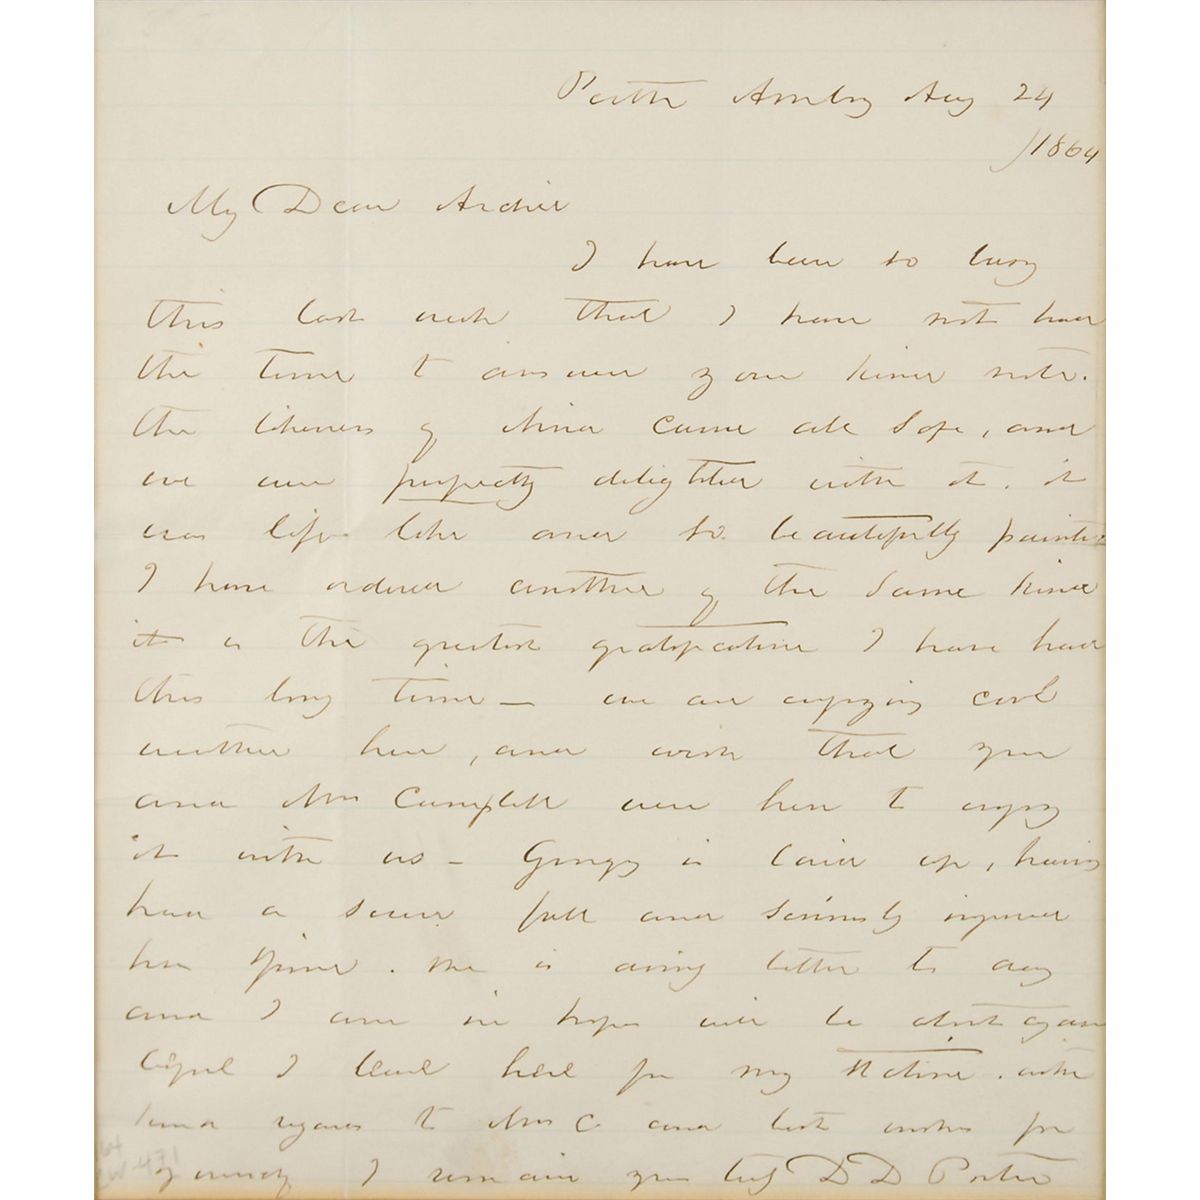 Perth Amboy Aug 24
/1864
My Dear Archie
I have been so busy
this last week that I have not had
the time to answer your kind note.
the likeness of Nina came all safe, and
we are perfectly delighted with it. it
was life like and so beautifully painted
I have ordered another of the same kind
it is the greatest gratification I have had
this long time — we are enjoying cool
weather here, and wish that you
and Mrs Campbell were here to enjoy
it with us — Georgy is laid up, having
had a severe fall and seriously injured
her spine. She is doing better to day
and I am in hopes will be about again
before I leave here for my station. with
kind regards to Mrs C and best wishes for
yourself I remain yours truly D D Porter
471